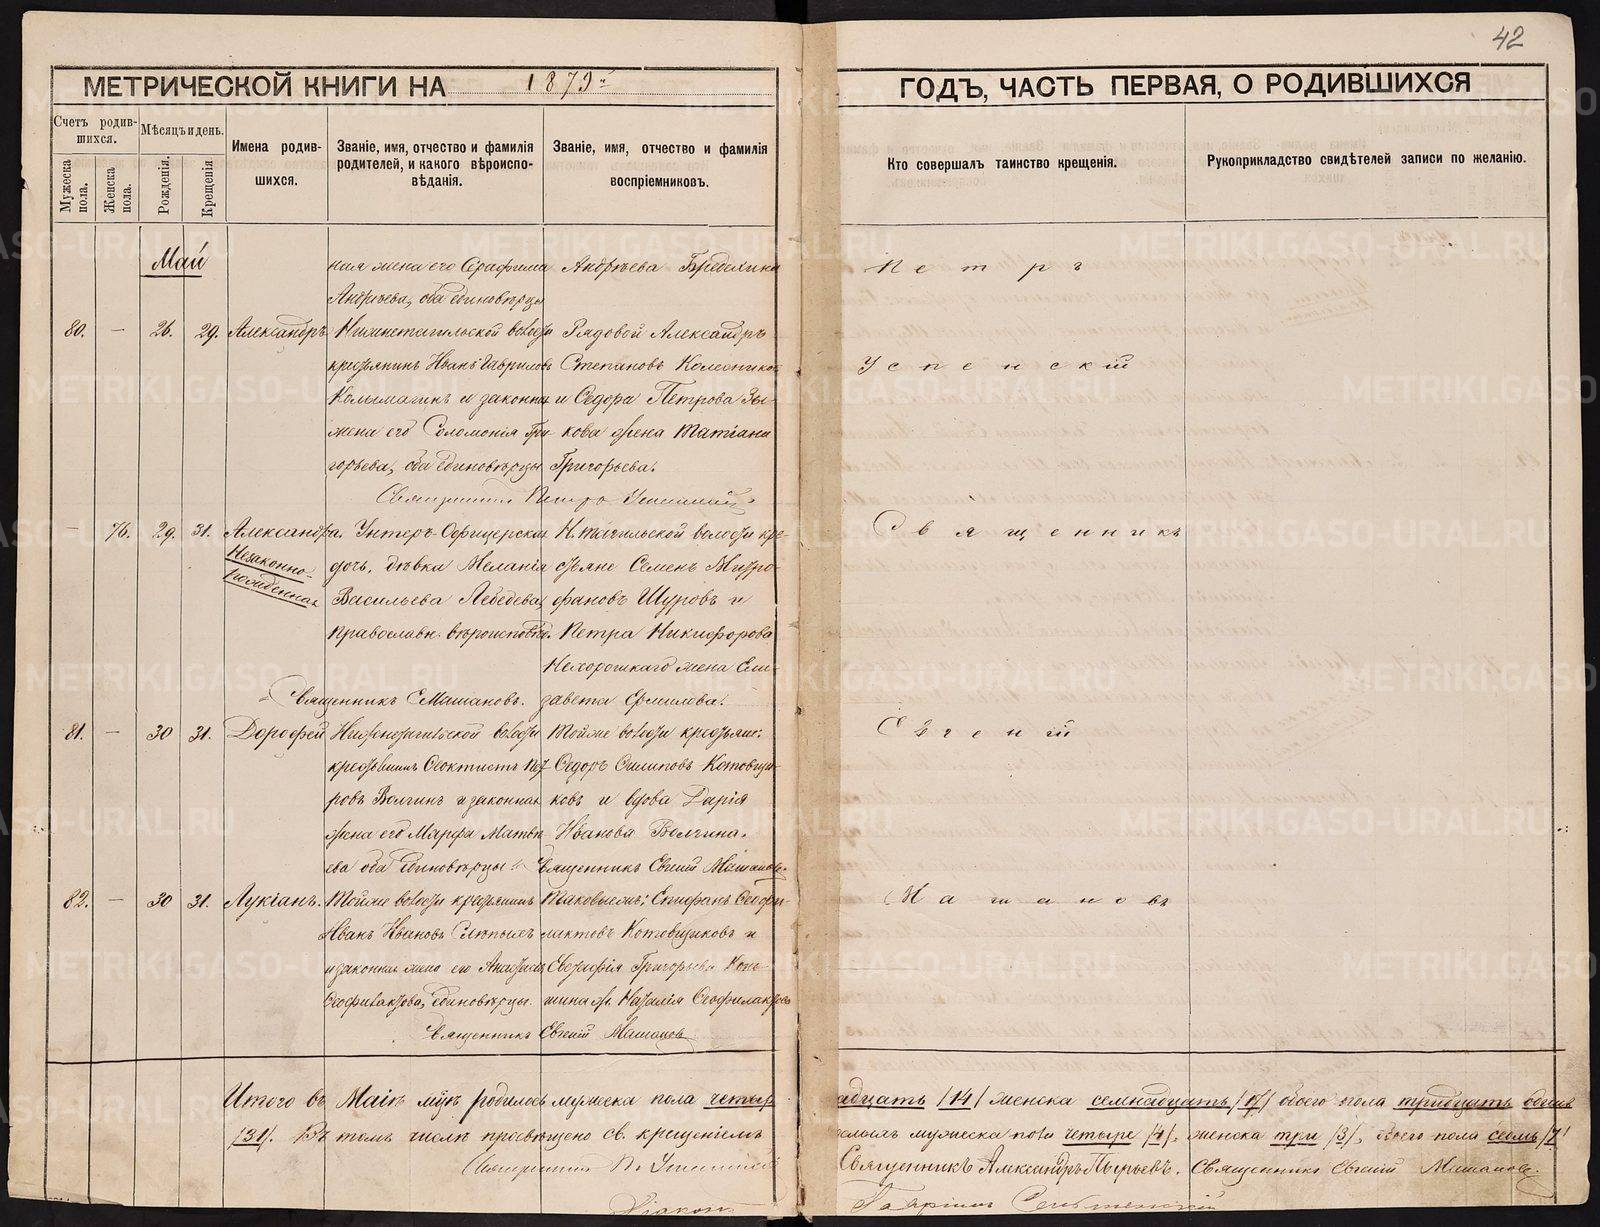 42
МЕТРИЧЕСКОЙ КНИГИ НА 1879 г
ГОДЪ, ЧАСТЬ ПЕРВАЯ, О РОДИВШИХСЯ
Счетъ родив-
шихся.
Мѣсяцъ и день.
Мужеска пола.
Женска пола.
Рожденія.
Крещенія
Имена родив-
шихся.
Званіе, имя, отчество и фамилія
родителей, и какого вѣроиспо-
вѣданія.
Званіе, имя, отчество и фамилія
воспріемниковъ.
Кто совершалъ таинство крещенія.
Рукоприкладство свидѣтелей записи по желанію.
Май
ная жена его Серафима
Андреева, оба единовѣрцы
Андреева
Петръ
80. — 26. 29. Александръ
Нижнетагильской волости
крестьянинъ Иванъ Гавриловъ
и законная
жена его Соломонія Гри-
горьева, оба единовѣрцы
Рядовой Александръ
Степановъ Колесников
и Ѳедора Петрова Зы-
кова жена Татіана
Григорьева.
Успенскій
Священникъ Петръ Успенскій
— 76. 29. 31. Александра.
Незаконно-
рожденная
Унтеръ-Офицерская
дочь, дѣвка Меланія
Васильева Лебедева,
православн. вѣроисповѣд.
Н. тагильской волости кре-
стьяне Семенъ Митро-
фановъ Щуровъ и
Петра Никифорова
Нехорошкаго жена Ели-
завета Ермилова.
Священникъ
Священникъ Е Машановъ.
81. — 30 31. Дороѳей
Нижнетагильской волости
Ѳеоктистъ Пет-
ровъ Волгинъ и законная
жена его Марфа Матвѣ
ева оба единовѣрцы
Тойже волости крестьяне:
Ѳедоръ Филиповъ Котовщи-
ковъ и вдова Дарія
Иванова Волгина.
Евгеній
Священникъ Евгеній Машановъ.
82. — 30 31. Лукіанъ.
Тойже волости крестьянинъ
Иванъ Ивановъ
и законная жена его
Ѳеофилактова, единовѣрцы.
Таковыежъ: Епифанъ Ѳеофи-
лактовъ Котовщиковъ и
Григорьева
Наталія Ѳеофилактова
Машановъ
Священникъ Евгеній Машановъ
Итого въ Маіѣ мцѣ родилось мужеска пола четыр
надцать /14/ женска семнадцать /17/ обоего пола тридцать одинъ
/31/. Въ томъ числѣ просвѣщено св. крещеніемъ
мужеска пола четыре /4/, женска три /3/, всего пола семь /7/
Священникъ П. Успенскій
Священникъ Александръ Пырьевъ. Священникъ Евгеній Машановъ.
Діаконъ
METRIKI.GASO-URAL.RU